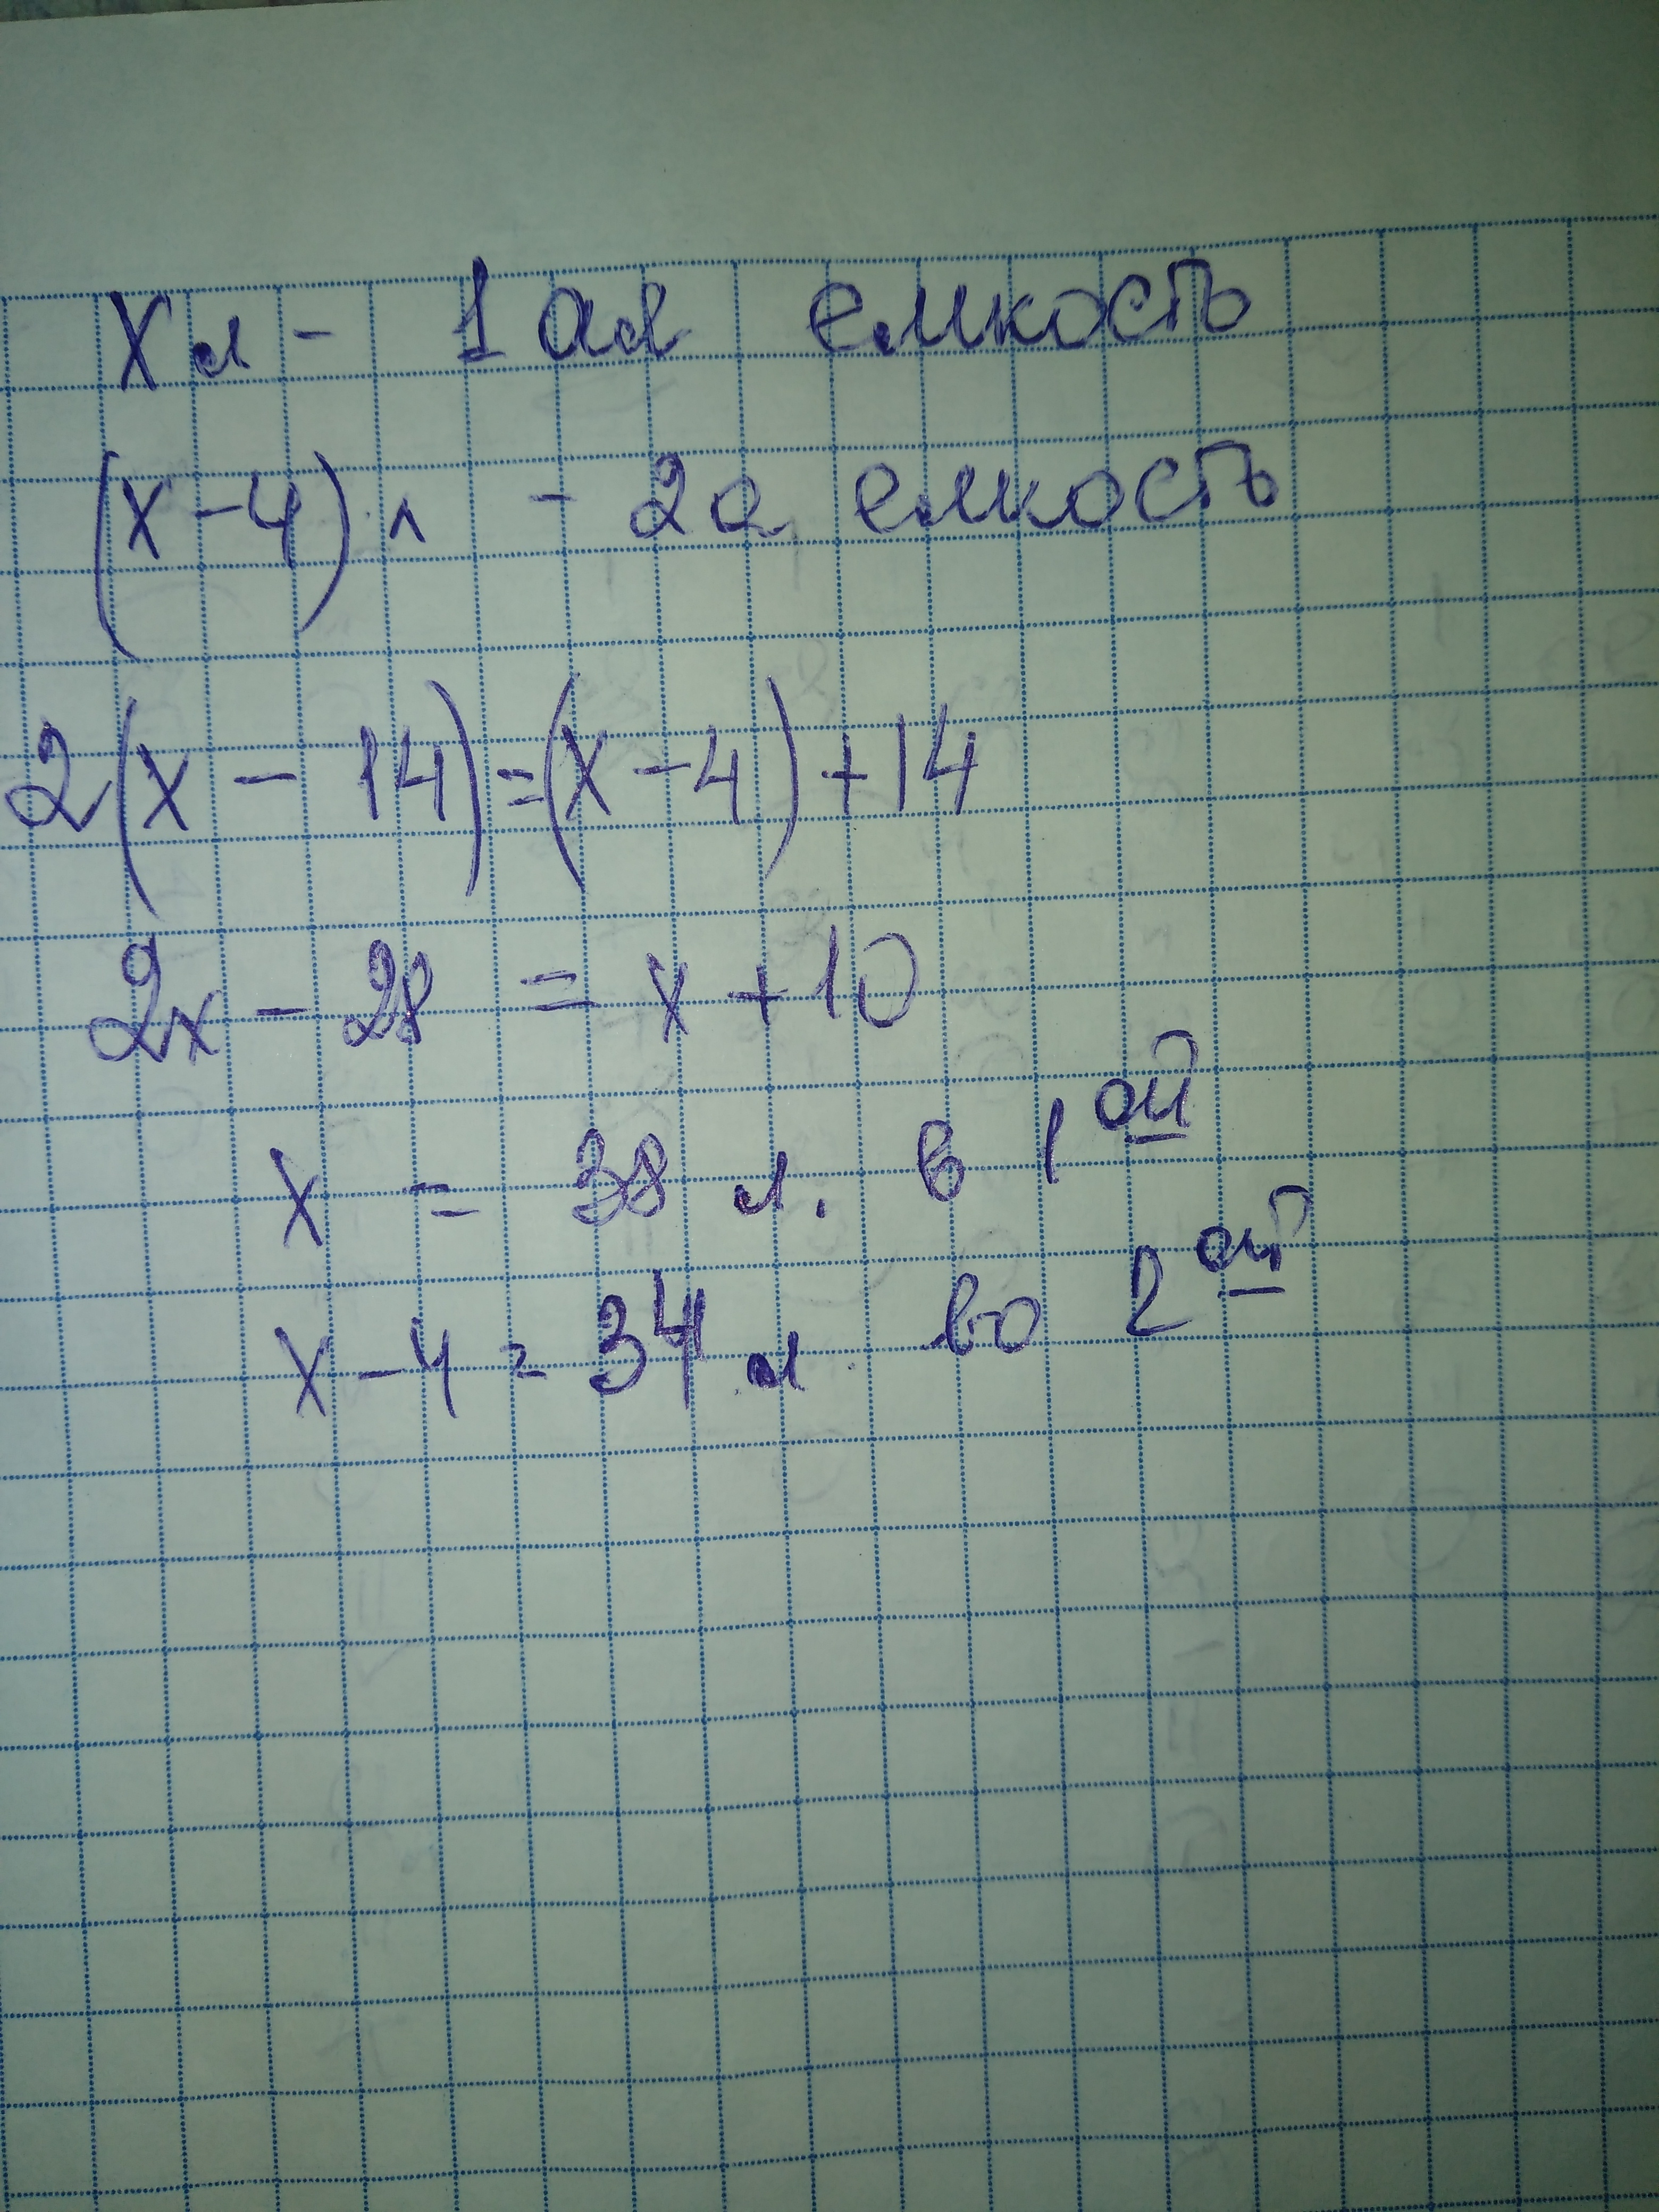 Xл - 1ая емкость
(x-4) л - 2а емкость
2(x - 14)=(x-4)+14
2x - 28 = x +10
x = 38 л. в 1ой
x-4=34 л во 2ой